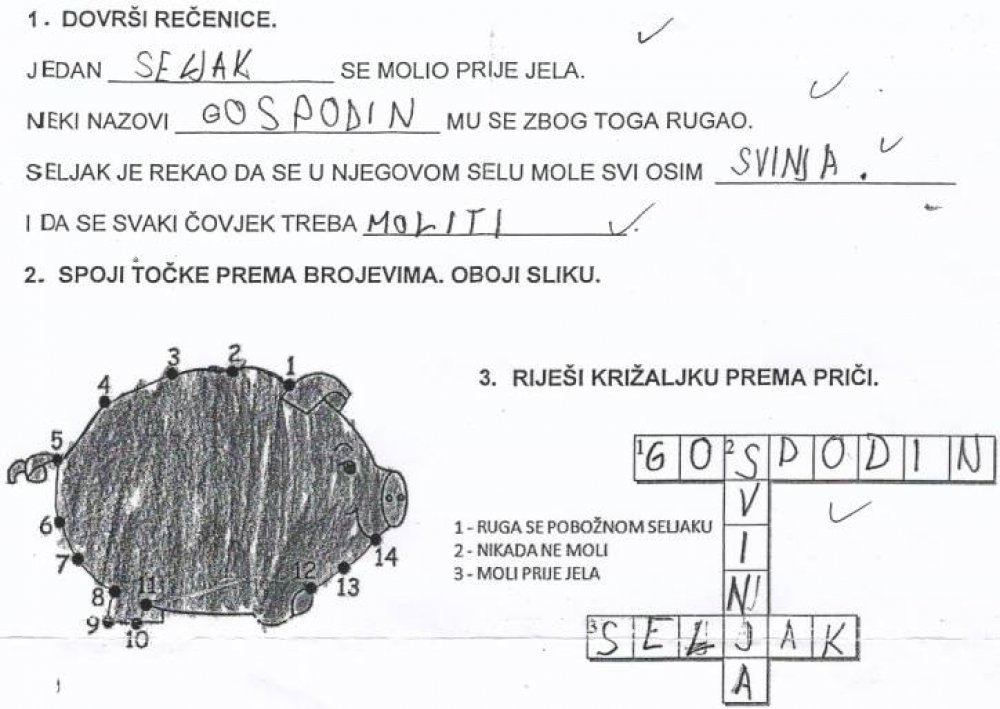 1. DOVRŠI REČENICE.
JEDAN SELJAK SE MOLIO PRIJE JELA.
NEKI NAZOVI GOSPODIN MU SE ZBOG TOGA RUGAO.
SELJAK JE REKAO DA SE U NJEGOVOM SELU MOLE SVI OSIM SVINJA.
I DA SE SVAKI ČOVJEK TREBA MOLITI.
2. SPOJI TOČKE PREMA BROJEVIMA. OBOJI SLIKU.
1
2
3
4
5
6
7
8
9
10
11
12
13
14
3. RIJEŠI KRIŽALJKU PREMA PRIČI.
1 - RUGA SE POBOŽNOM SELJAKU
2 - NIKADA NE MOLI
3 - MOLI PRIJE JELA
1 GO2SPODIN
V
I
N
3 SELJAK
A